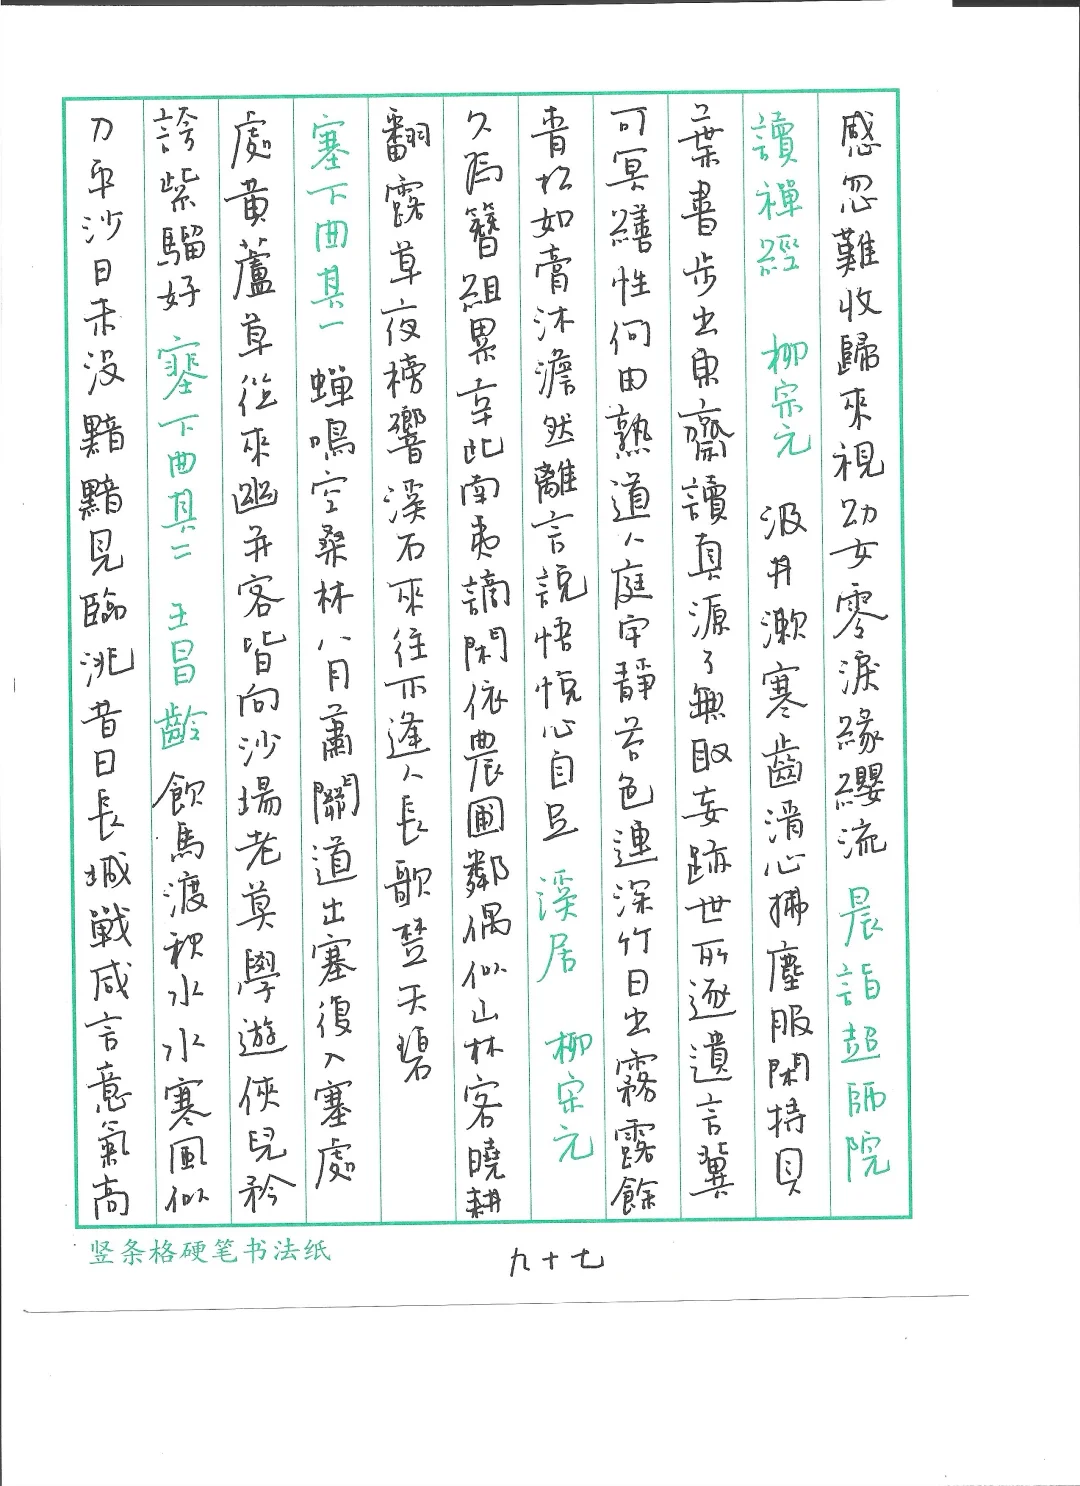 感忽難收歸來視幼女零淚緣纓流 晨詣超師院
讀禪經 柳宗元 汲井漱寒齒清心拂塵服閑持貝
葉書步出東齋讀真源了無取妄跡世所逐遺言冀
可冥繕性何由熟道人庭宇靜苔色連深竹日出霧露餘
青松如膏沐澹然離言說悟悅心自足 溪居 柳宗元
久為簪組累幸此南夷謫閑依農圃鄰偶似山林客曉耕
翻露草夜榜響溪石來往不逢人長歌楚天碧
塞下曲其一 蟬鳴空桑林八月蕭關道出塞復入塞處
處黃蘆草從來幽并客皆向沙場老莫學遊俠兒矜
誇紫騮好 塞下曲其二 王昌齡 飲馬渡秋水水寒風似
刀平沙日未沒黯黯見臨洮昔日長城戰咸言意氣高
竖条格硬笔书法纸
九十七